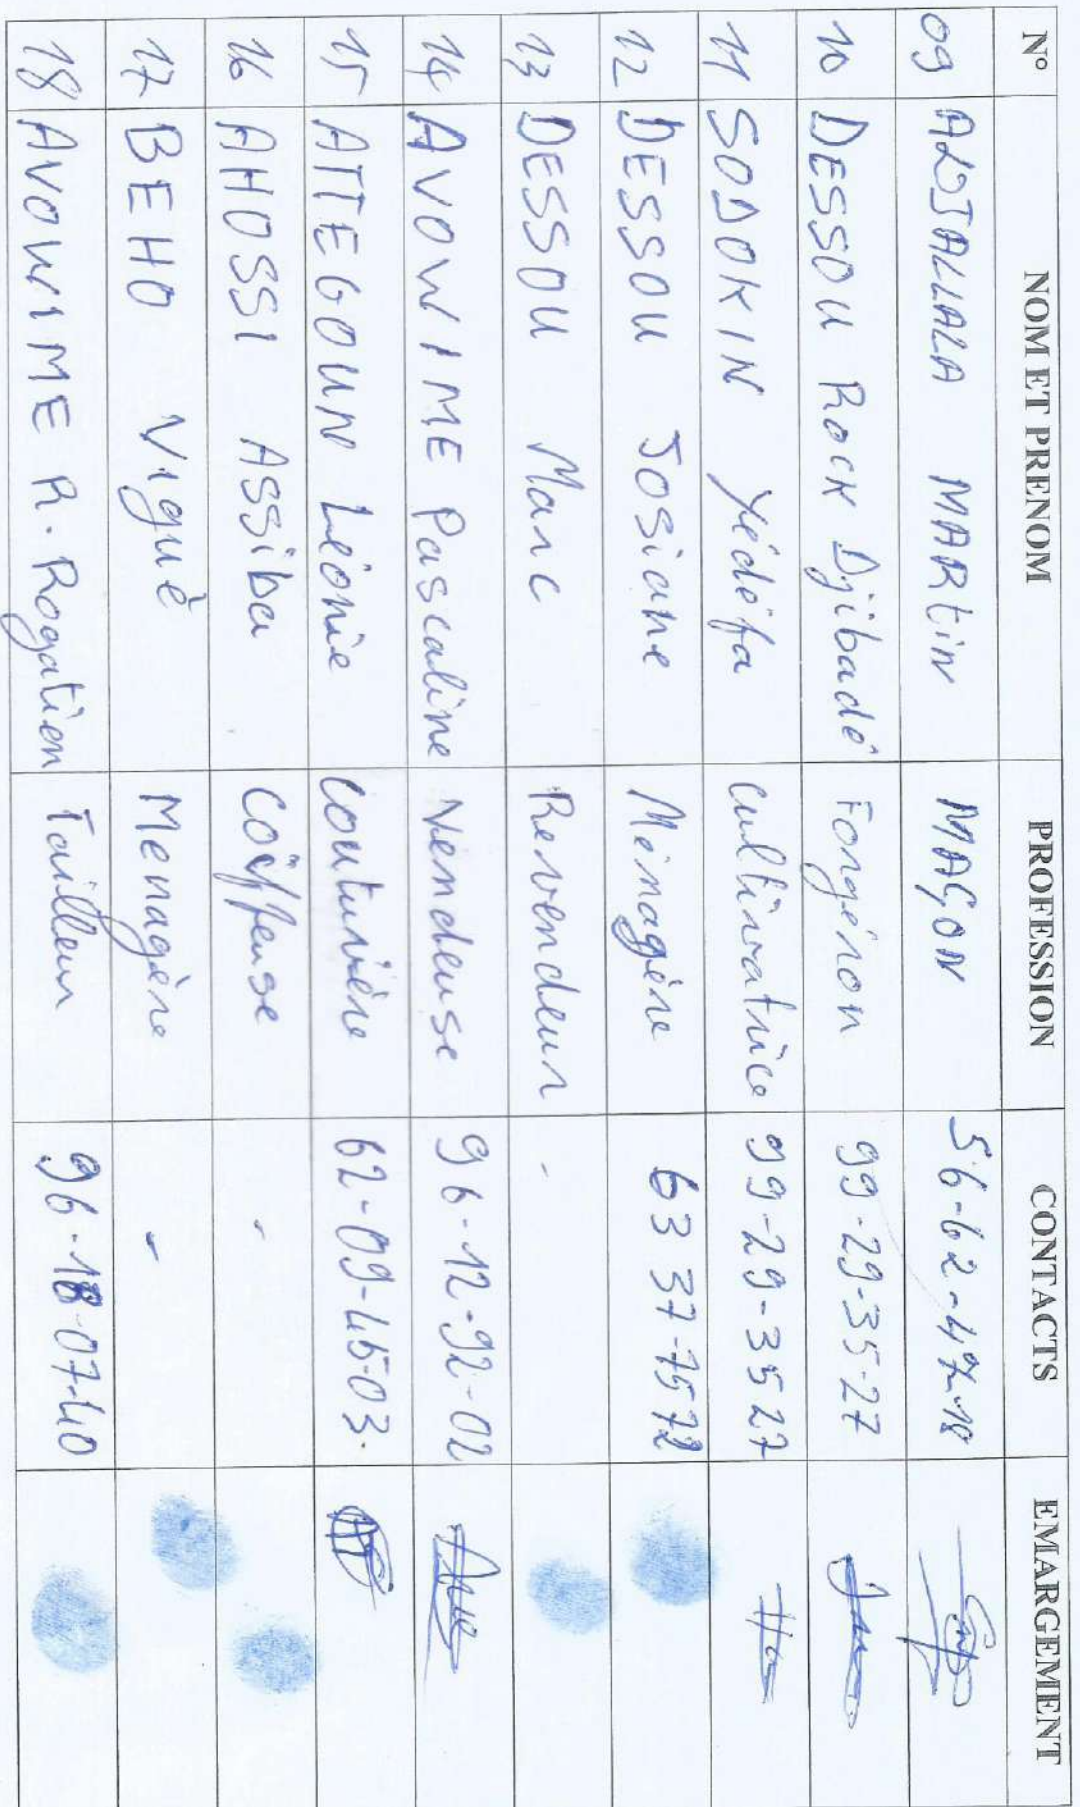 N° NOM ET PRENOM PROFESSION CONTACTS EMARGEMENT
09 ADJALLALA MARTIN MAÇON 56-62-47-18
10 DESSOU Rock Djibadé Forgéron 99-29-35-27
11 SODOKIN Yédéfa Cultivatrice 99-29-35 27
12 DESSOU Josiane Ménagère 63 37-7572
13 DESSOU Marc Revendeur -
14 AVOWIME Pascaline Vendeuse 96-12-92-02
15 ATTEGOUN Léonie Couturière 62-09-45-03.
16 AHOSSI Assiba Coiffeuse -
17 BEHO Viguè Menagère -
18 AVOWIME R. Rogatien Tailleur 96-18-07-40